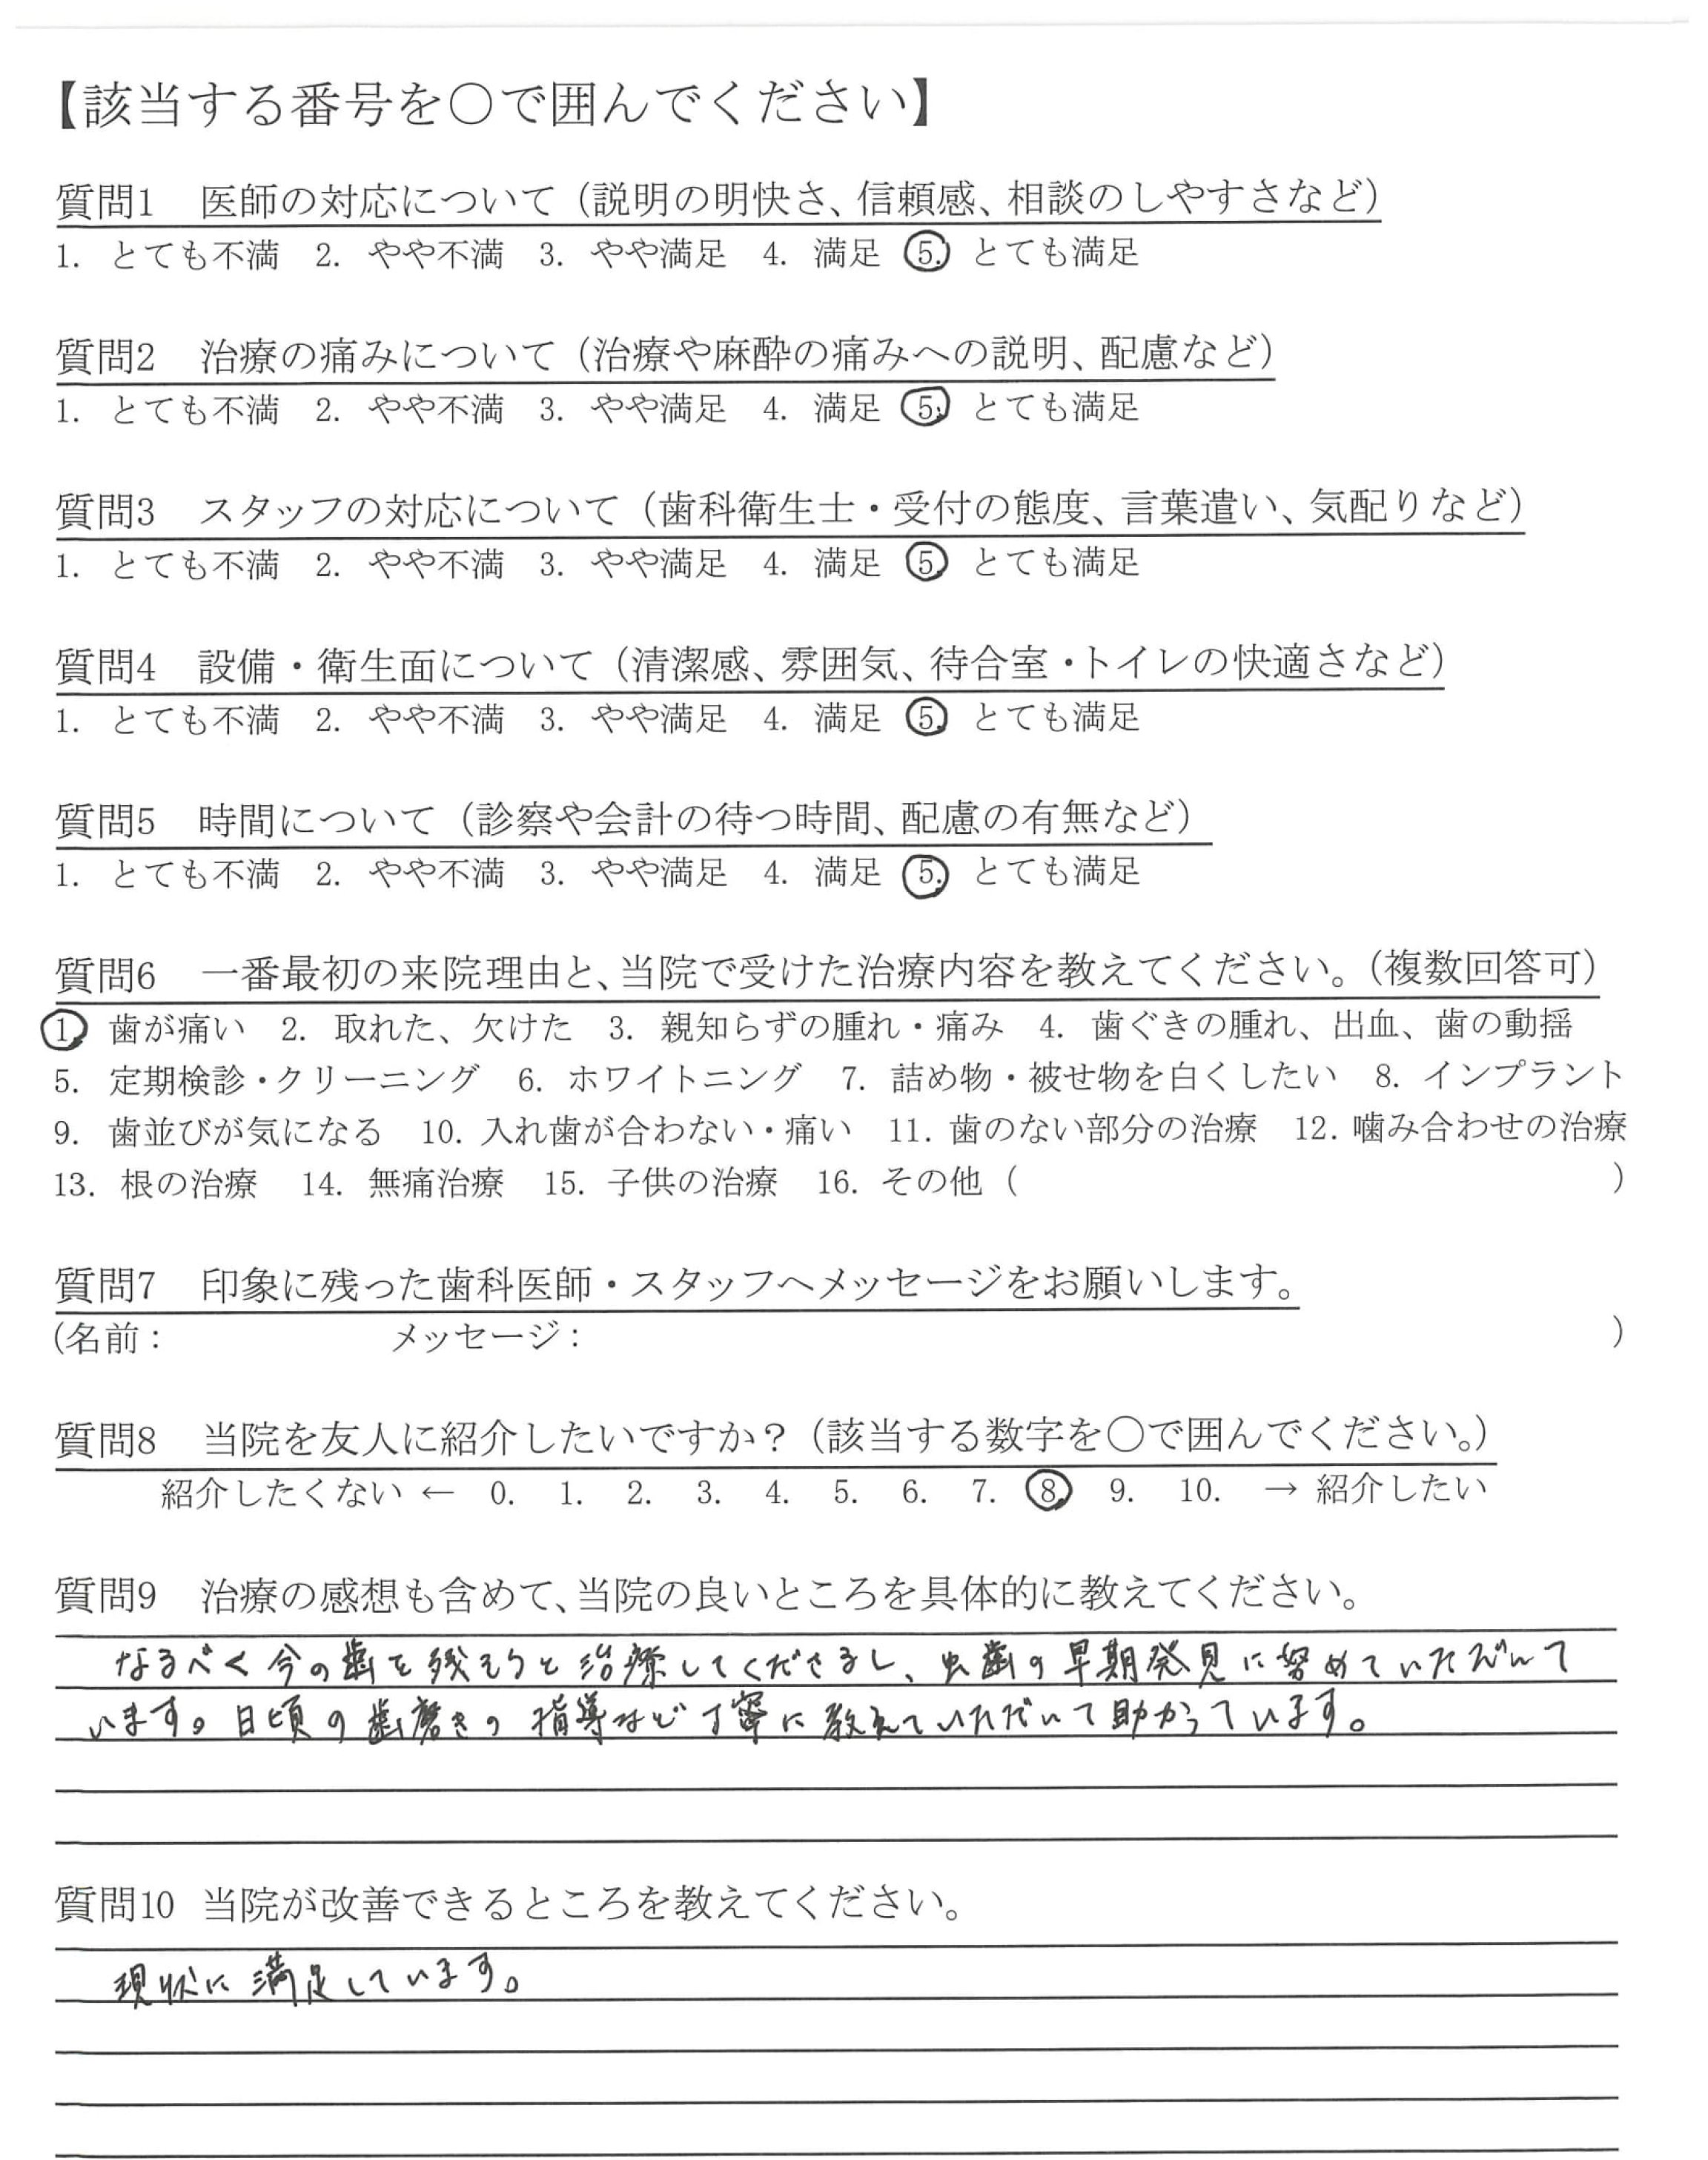 【該当する番号を○で囲んでください】
質問1 医師の対応について（説明の明快さ、信頼感、相談のしやすさなど）
1. とても不満 2. やや不満 3. やや満足 4. 満足 5. とても満足
質問2 治療の痛みについて（治療や麻酔の痛みへの説明、配慮など）
1. とても不満 2. やや不満 3. やや満足 4. 満足 5. とても満足
質問3 スタッフの対応について（歯科衛生士・受付の態度、言葉遣い、気配りなど）
1. とても不満 2. やや不満 3. やや満足 4. 満足 5. とても満足
質問4 設備・衛生面について（清潔感、雰囲気、待合室・トイレの快適さなど）
1. とても不満 2. やや不満 3. やや満足 4. 満足 5. とても満足
質問5 時間について（診察や会計の待つ時間、配慮の有無など）
1. とても不満 2. やや不満 3. やや満足 4. 満足 5. とても満足
質問6 一番最初の来院理由と、当院で受けた治療内容を教えてください。（複数回答可）
1. 歯が痛い 2. 取れた、欠けた 3. 親知らずの腫れ・痛み 4. 歯ぐきの腫れ、出血、歯の動揺
5. 定期検診・クリーニング 6. ホワイトニング 7. 詰め物・被せ物を白くしたい 8. インプラント
9. 歯並びが気になる 10. 入れ歯が合わない・痛い 11. 歯のない部分の治療 12. 噛み合わせの治療
13. 根の治療 14. 無痛治療 15. 子供の治療 16. その他（ ）
質問7 印象に残った歯科医師・スタッフへメッセージをお願いします。
（名前： メッセージ： ）
質問8 当院を友人に紹介したいですか？（該当する数字を○で囲んでください。）
紹介したくない ← 0. 1. 2. 3. 4. 5. 6. 7. 8. 9. 10. → 紹介したい
質問9 治療の感想も含めて、当院の良いところを具体的に教えてください。
なるべく今の歯を残そうと治療してくださるし、虫歯の早期発見に努めていただいて
います。日頃の歯磨きの指導など丁寧に教えていただいて助かっています。
質問10 当院が改善できるところを教えてください。
現状に満足しています。